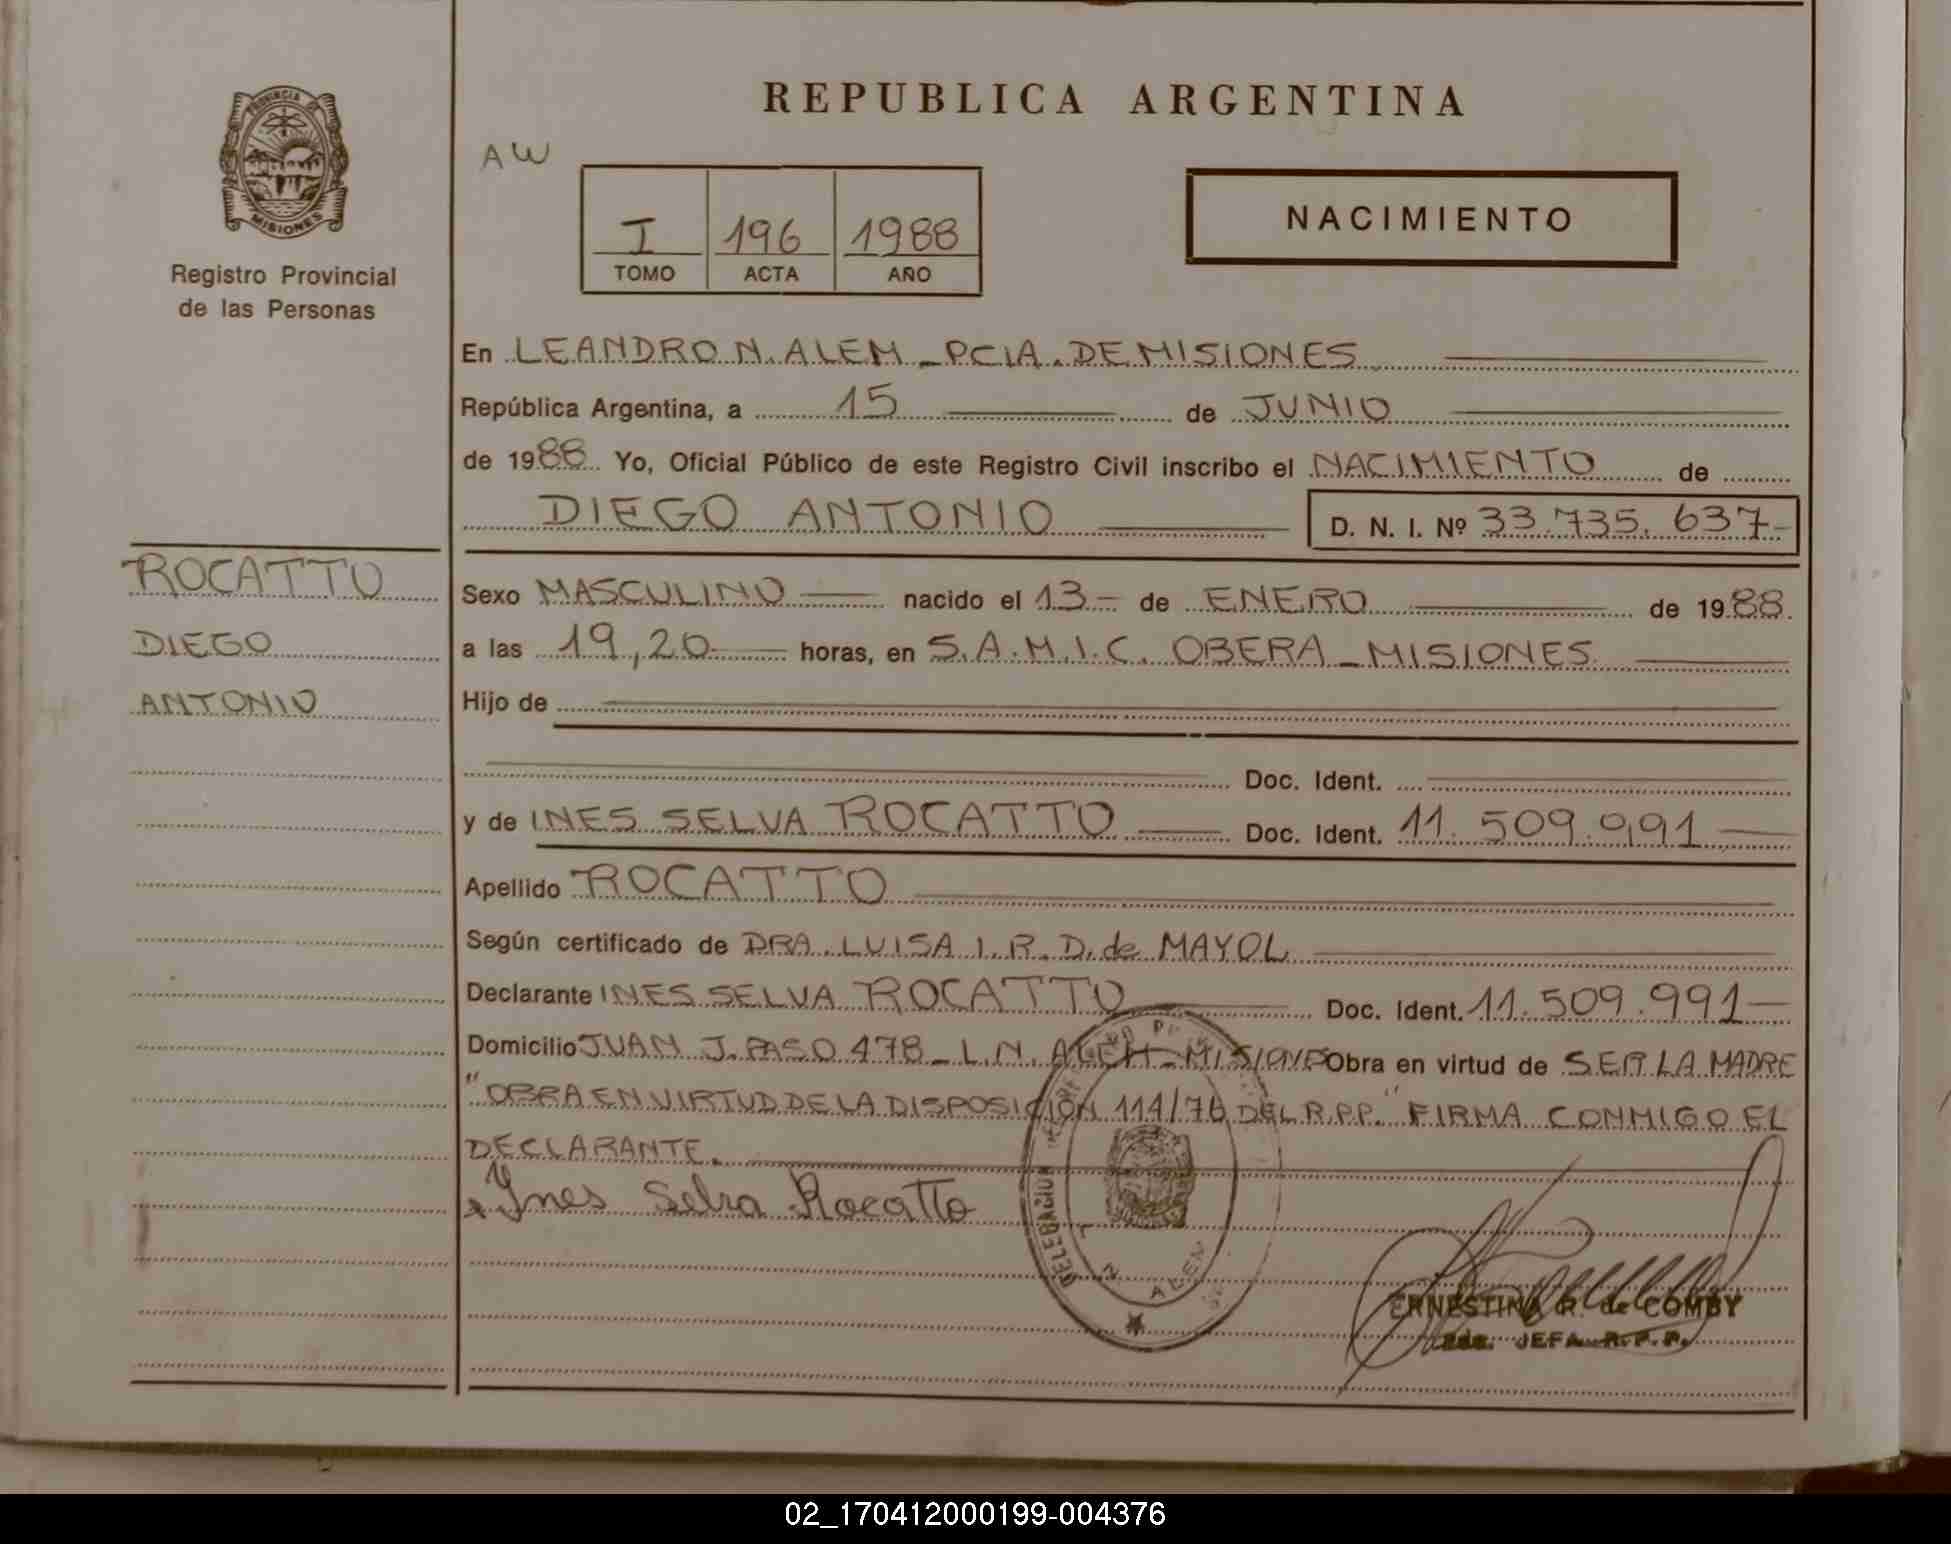 REPUBLICA ARGENTINA
PROVINCIA DE
MISIONES
Registro Provincial
de las Personas
AW
I 196 1988
TOMO ACTA AÑO
NACIMIENTO
En LEANDRO N. ALEM - PCIA. DE MISIONES
República Argentina, a 15 de JUNIO
de 1988 Yo, Oficial Público de este Registro Civil inscribo el NACIMIENTO de
DIEGO ANTONIO D. N. I. Nº 33.735.637-
ROCATTO
DIEGO
ANTONIO
Sexo MASCULINO nacido el 13 - de ENERO de 1988.
a las 19,20 horas, en S.A.M.I.C. OBERA - MISIONES
Hijo de
Doc. Ident.
y de INES SELVA ROCATTO Doc. Ident. 11.509.991
Apellido ROCATTO
Según certificado de DRA. LUISA I. R. D. de MAYOL
Declarante INES SELVA ROCATTO Doc. Ident. 11.509.991
Domicilio JUAN J. PASO 478 - L.N. ALEM - MISIONES Obra en virtud de SER LA MADRE
"OBRA EN VIRTUD DE LA DISPOSICION 114/76 DEL R.P.P." FIRMA CONMIGO EL
DECLARANTE.
Ynes Selva Rocatto
DELEGACION
L. N. ALEM
ERNESTINA R. de COMBY
JEFA R. P. P.
02_170412000199-004376